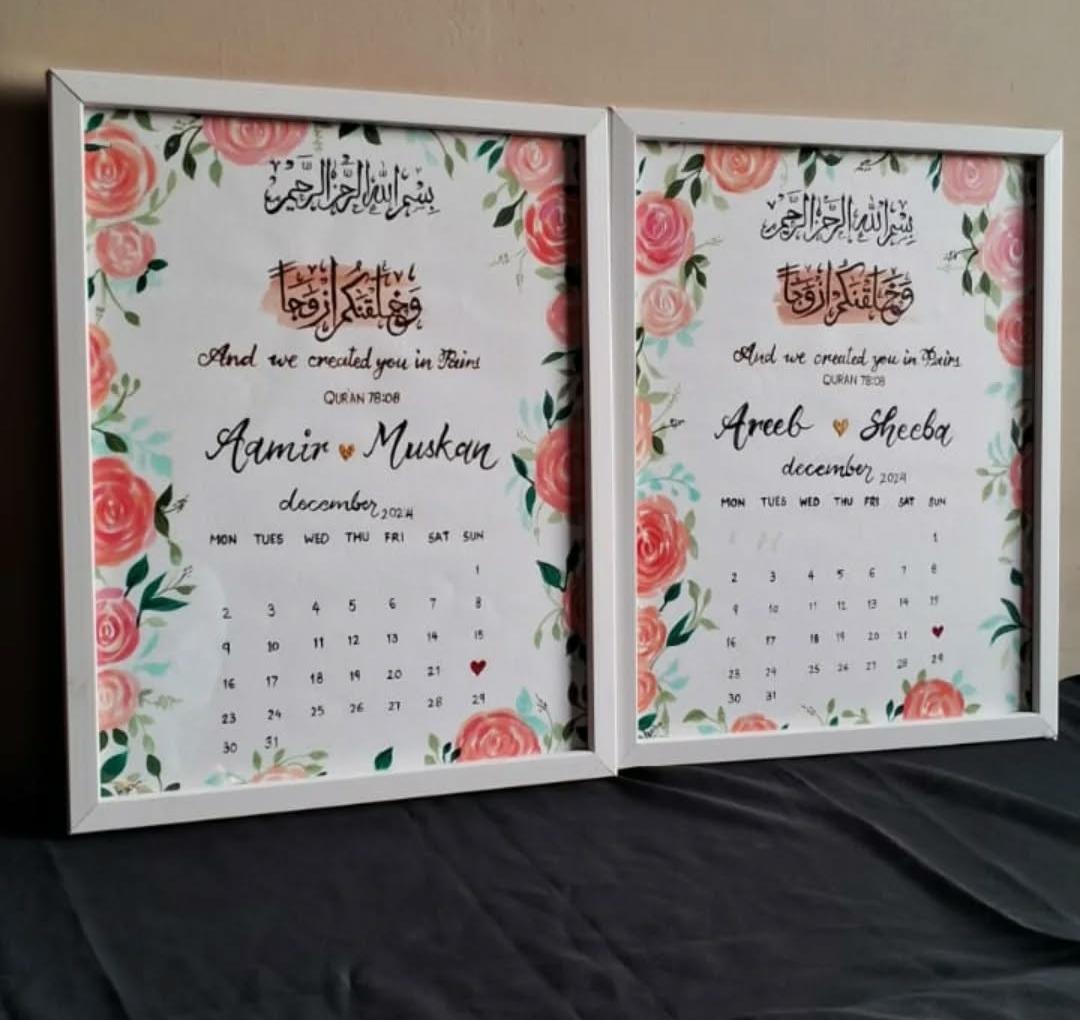 بِسْمِ اللهِ الرَّحْمٰنِ الرَّحِيْمِ
وَخَلَقْنٰكُمْ اَزْوَجًا
And we created you in Pairs
QUR'AN 78:08
Aamir Muskan
december 2024
MON TUES WED THU FRI SAT SUN
1
2 3 4 5 6 7 8
9 10 11 12 13 14 15
16 17 18 19 20 21
23 24 25 26 27 28 29
30 31
بِسْمِ اللهِ الرَّحْمٰنِ الرَّحِيْمِ
وَخَلَقْنٰكُمْ اَزْوَجًا
And we created you in Pairs
QURAN 78:08
Areeb Sheeba
december 2024
MON TUES WED THU FRI SAT SUN
1
2 3 4 5 6 7 8
9 10 11 12 13 14 15
16 17 18 19 20 21
23 24 25 26 27 28 29
30 31